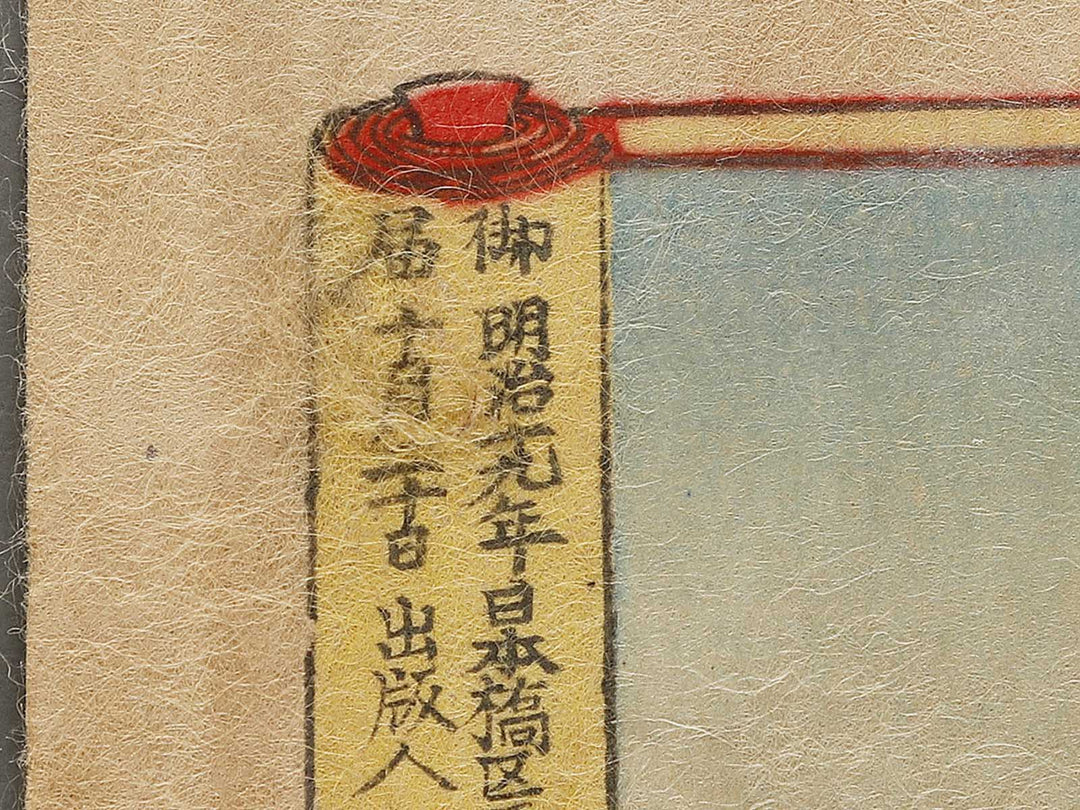 御 明治十九年日本橋区
届 十月二十日 出版人